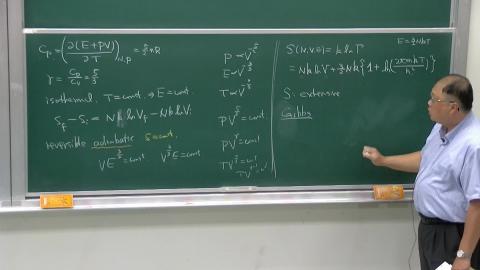 Cp = (∂(E+PV)/∂T)N,P = 5/2 nR
γ = Cp/Cv = 5/3
isothermal. T=const. → E=const.
Sf - Si = Nk ln Vf - Nk ln Vi
reversible adiabatic S=const.
VE^(3/2) = const V^(2/3)E = const
P ∝ V^(-5/3)
E ∝ V^(-2/3)
T ∝ V^(-2/3)
PV^(5/3) = const.
PV^γ = const.
TV^(2/3) = const
TV^(γ-1) = const
E = 3/2 NkT
S(N,V,E) = k ln Γ
= Nk ln V + 3/2 Nk {1 + ln(2πmkT/h²)}
S: extensive
Gibbs